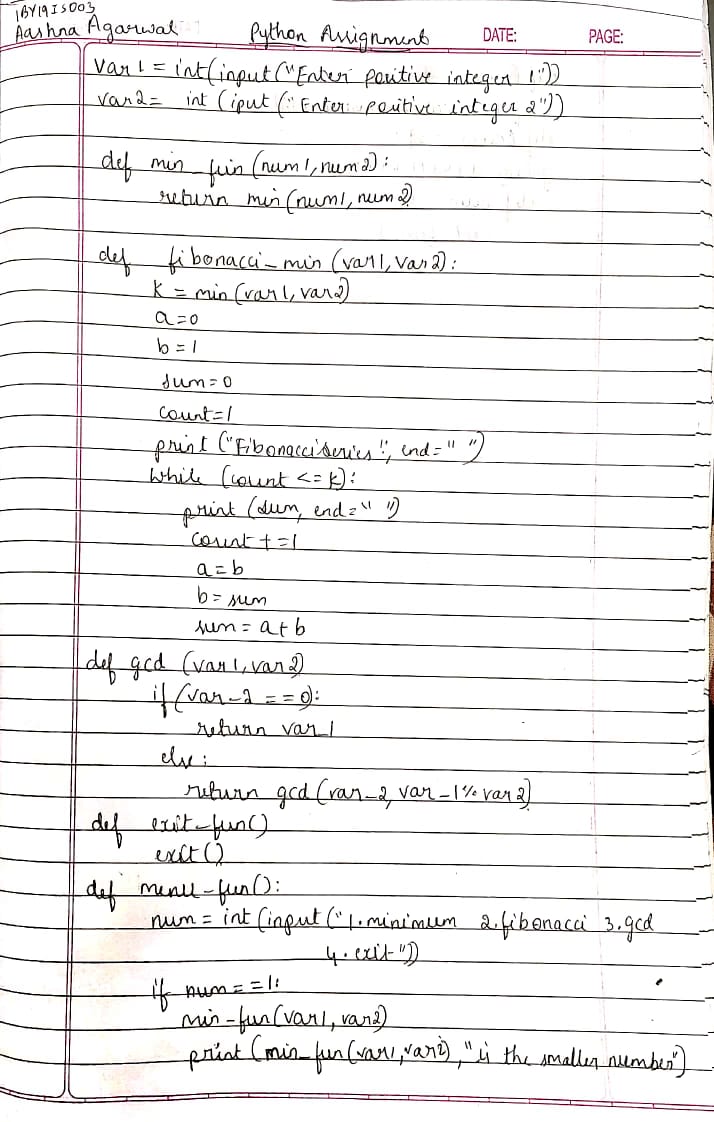 1BY19IS003
Aashna Agarwal Python Assignment DATE: PAGE:
var1 = int(input("Enter positive integer 1"))
var2= int (iput ("Enter positive integer 2"))
def min_fun (num1, num2):
return min (num1, num2)
def fibonacci_min (var1, var2):
K = min (var1, var2)
a=0
b=1
sum=0
count=1
print ("Fibonacci series", end=" ")
while (count <= k):
print (sum, end=" ")
count +=1
a=b
b= sum
sum = a+b
def gcd (var1, var2)
if (var_2 == 0):
return var_1
else:
return gcd (var_2, var_1%var2)
def exit_fun()
exit ()
def menu_fun():
num = int (input ("1.minimum 2.fibonacci 3.gcd
4.exit"))
if num==1:
min_fun(var1, var2)
print (min_fun(var1, var2), "is the smaller number")